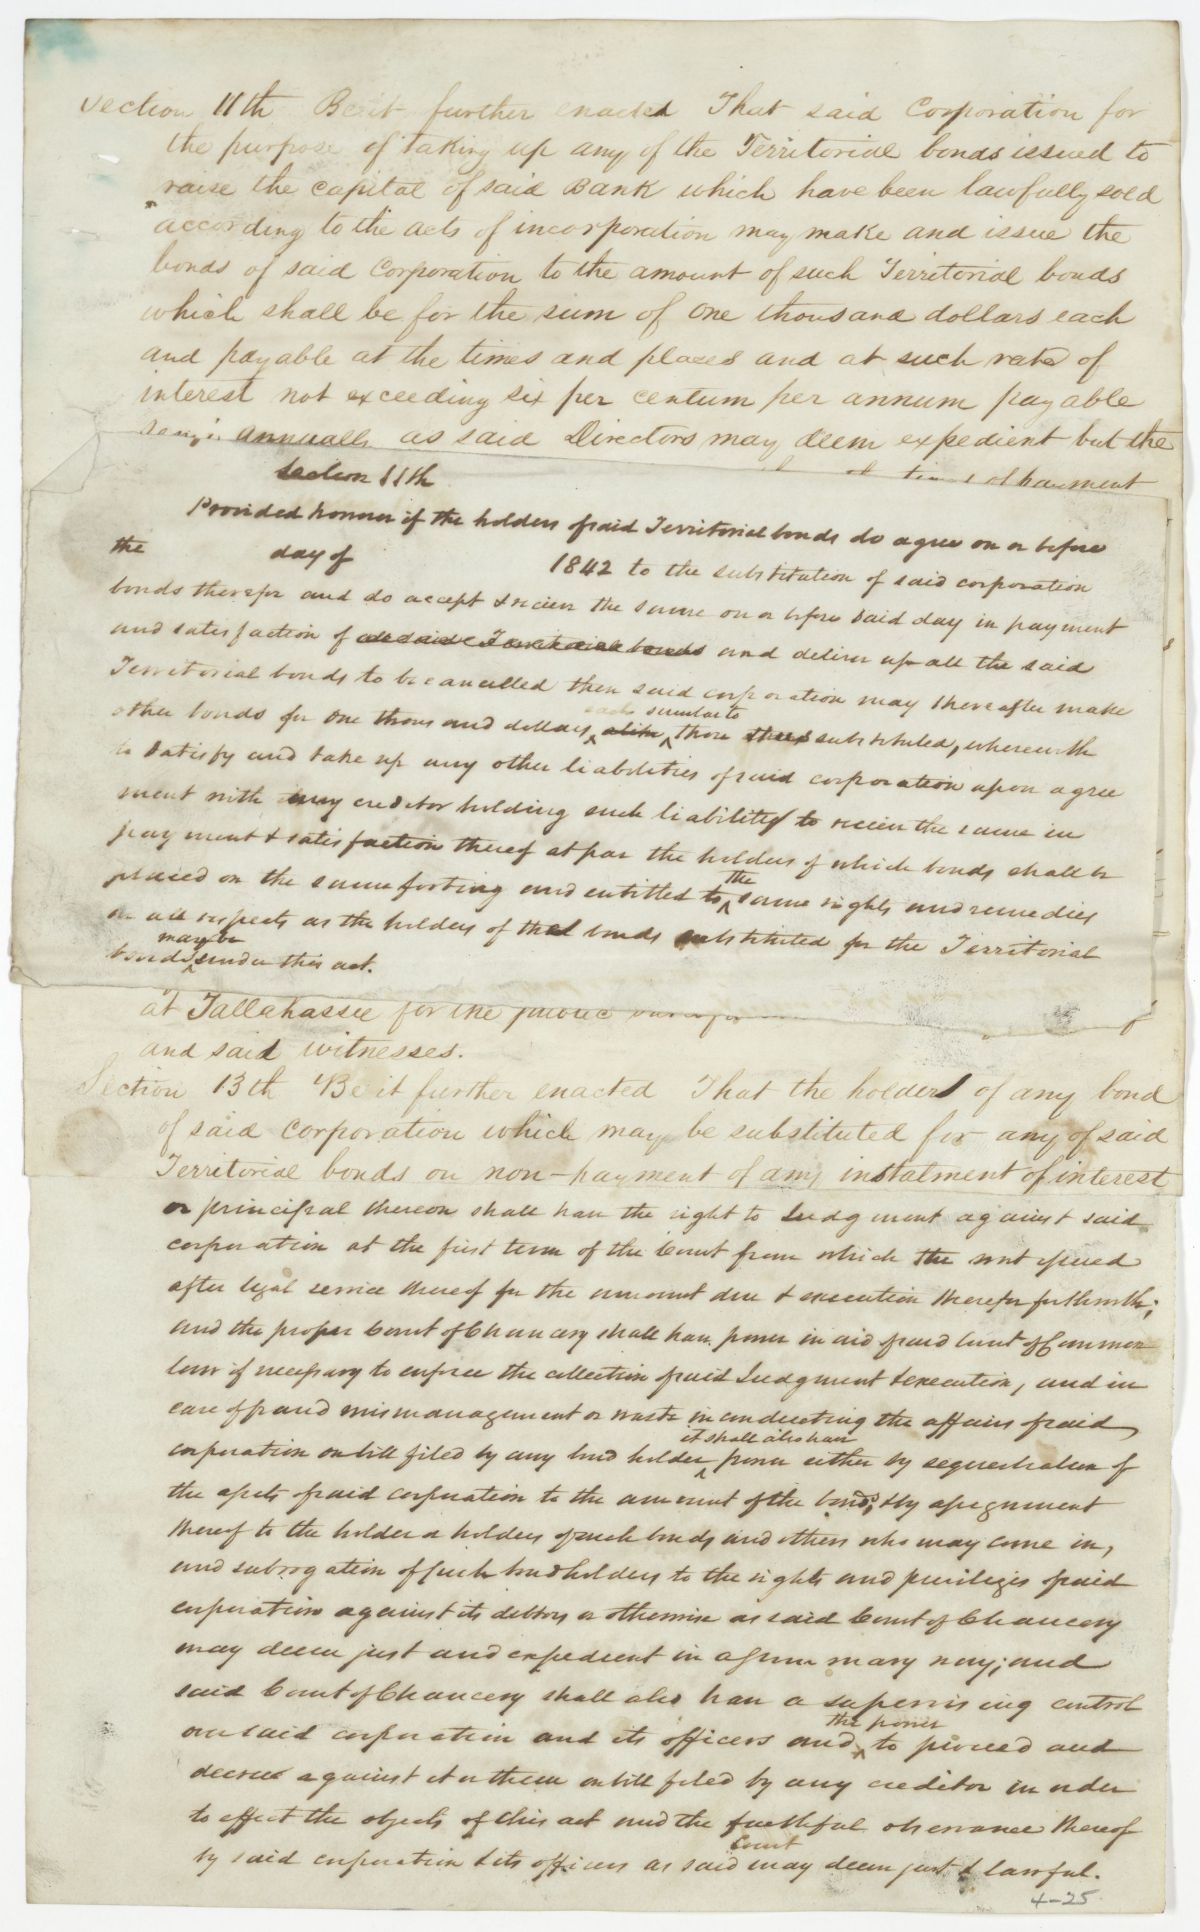 Section 11th Be it further enacted That said Corporation for
the purpose of taking up any of the Territorial bonds issued to
raise the capital of said Bank which have been lawfully sold
according to the acts of incorporation may make and issue the
bonds of said Corporation to the amount of such Territorial bonds
which shall be for the sum of One thousand dollars each
and payable at the times and places and at such rate of
interest not exceeding six per centum per annum payable
annually as said Directors may deem expedient but the
times of payment
Section 11th
Provided however if the holders of said Territorial bonds do agree on or before
the day of 1842 to the substitution of said corporation
bonds therefor and do accept & recieve the same on or before said day in payment
and satisfaction of all said Territorial bonds and deliver up all the said
Territorial bonds to be cancelled then said corporation may thereafter make
each similar to
other bonds for One thousand dollars, those substituted, wherewith
to satisfy and take up any other liabilities of said corporation upon agree
ment with any creditor holding such liability to recieve the same in
payment & satisfaction thereof at par the holders of which bonds shall be
the
placed on the same footing and entitled to ^ same rights and remedies
in all respects as the holders of the bonds substituted for the Territorial
may be
bonds ^ under this act.
at Tallahassee for the
and said witnesses.
Section 13th Be it further enacted That the holders of any bond
of said Corporation which may be substituted for any of said
Territorial bonds on non-payment of any instalment of interest
or principal thereon shall have the right to Judgment against said
corporation at the first term of the Court from which the writ issued
after legal service thereof for the amount due & execution therefor forthwith;
and the proper Court of Chancery shall have power in aid of said Court of Common
law if necessary to enforce the collection of said Judgment & execution, and in
case of fraud mismanagement or waste in conducting the affairs of said
it shall also have
corporation on bill filed by any bond holder ^ power either by sequestration of
the assets of said corporation to the amount of the bonds, & by assignment
thereof to the holder or holders of such bonds and others who may come in,
and subrogation of such bondholders to the rights and privileges of said
corporation against its debtors or otherwise as said Court of Chancery
may deem just and expedient in a summary way; and
said Court of Chancery shall also have a supervising control
the power
over said corporation and its officers and ^ to proceed and
decree against it or them on bill filed by any creditor in order
to effect the objects of this act and the faithful observance thereof
Court
by said corporation & its officers as said may deem just & lawful.
4-25